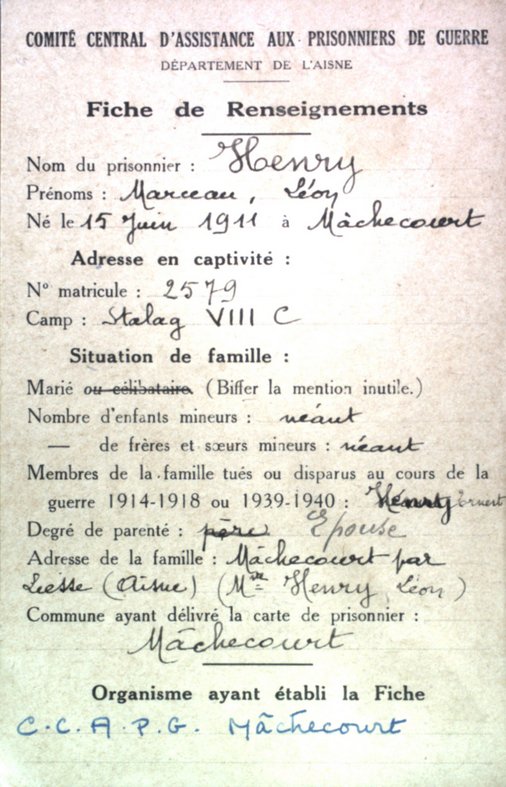 COMITÉ CENTRAL D'ASSISTANCE AUX PRISONNIERS DE GUERRE
DÉPARTEMENT DE L'AISNE
Fiche de Renseignements
Nom du prisonnier : Henry
Prénoms : Marceau, Léon
Né le 15 Juin 1911 à Mâchecourt
Adresse en captivité :
N° matricule : 2579
Camp : Stalag VIII C
Situation de famille :
Marié ou célibataire. (Biffer la mention inutile.)
Nombre d'enfants mineurs : néant
— de frères et sœurs mineurs : néant
Membres de la famille tués ou disparus au cours de la
guerre 1914-1918 ou 1939-1940 : Henry Ernest
Degré de parenté : père Epouse
Adresse de la famille : Mâchecourt par
Liesse (Aisne) (Mme Henry Léon)
Commune ayant délivré la carte de prisonnier :
Mâchecourt
Organisme ayant établi la Fiche
C.C.A.P.G. Mâchecourt